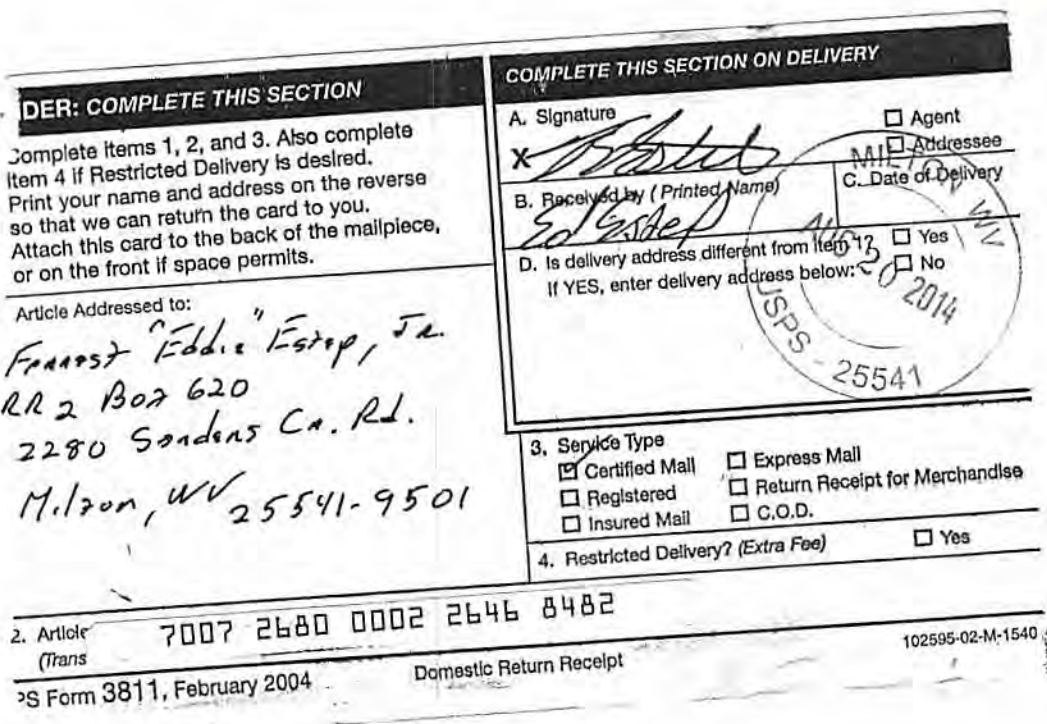 DER: COMPLETE THIS SECTION
Complete items 1, 2, and 3. Also complete
item 4 if Restricted Delivery is desired.
Print your name and address on the reverse
so that we can return the card to you.
Attach this card to the back of the mailpiece,
or on the front if space permits.
Article Addressed to:
Forrest "Eddie" Estep, Jr.
RR 2 Box 620
2280 Sanders Cr. Rd.
Milton, WV 25541-9501
COMPLETE THIS SECTION ON DELIVERY
A. Signature
X
Agent
Addressee
B. Received by (Printed Name)
Ed Estep
C. Date of Delivery
D. Is delivery address different from item 1? Yes
If YES, enter delivery address below: No
MILTON WV
AUG 20 2014
USPS - 25541
3. Service Type
Certified Mail Express Mail
Registered Return Receipt for Merchandise
Insured Mail C.O.D.
4. Restricted Delivery? (Extra Fee) Yes
2. Article
(Trans
7007 2680 0002 2646 8482
PS Form 3811, February 2004 Domestic Return Receipt 102595-02-M-1540